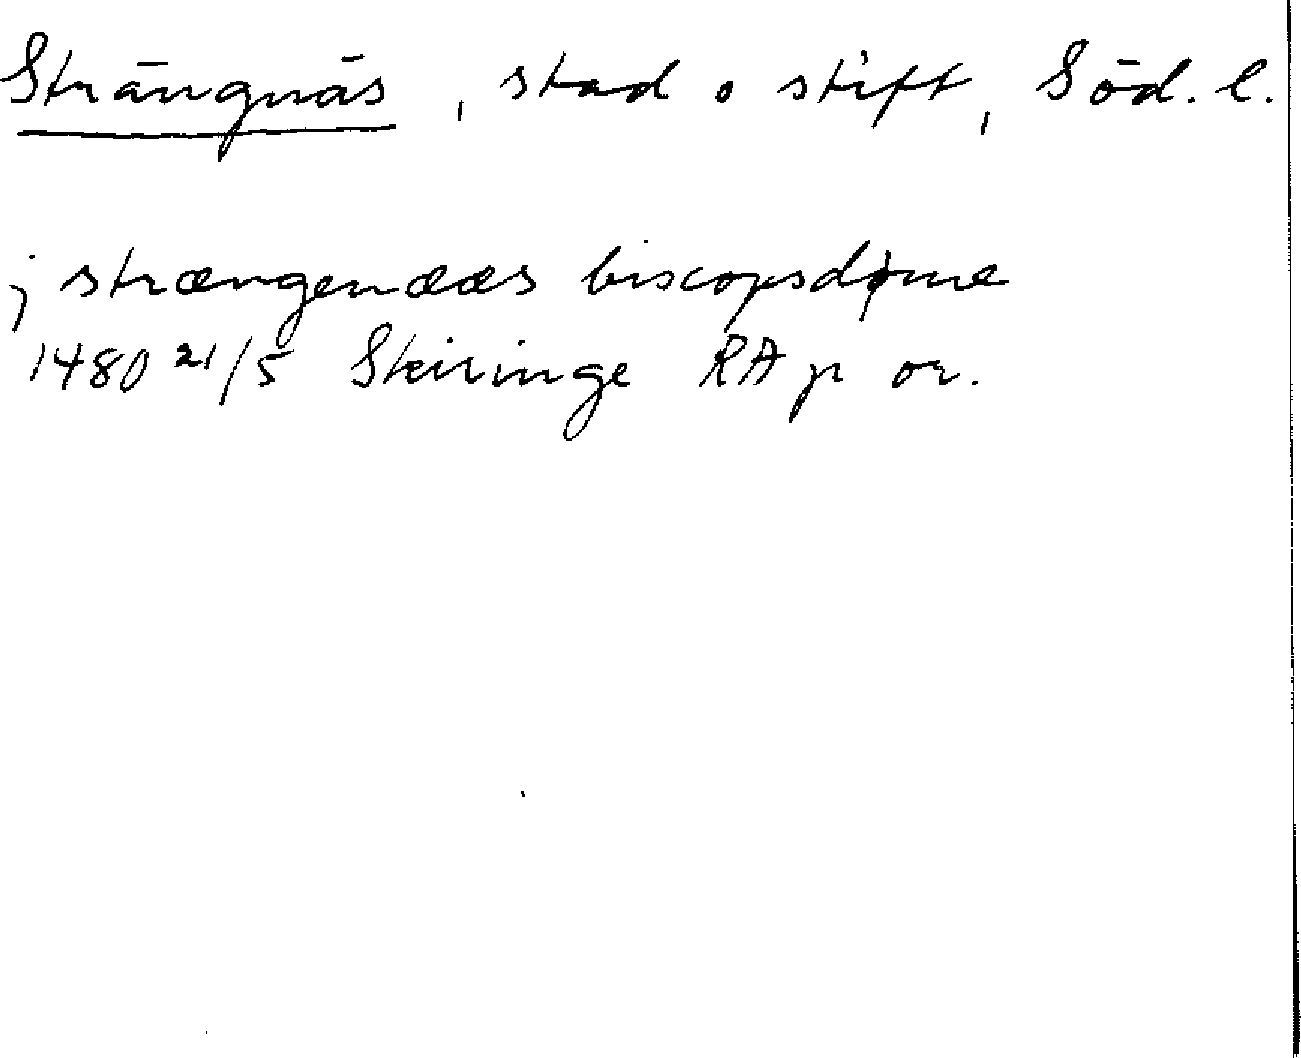 Strängnäs, stad o stift, Söd. l.
j strængenææs biscopsdøme
1480 21/5 Skiringe RA p or.